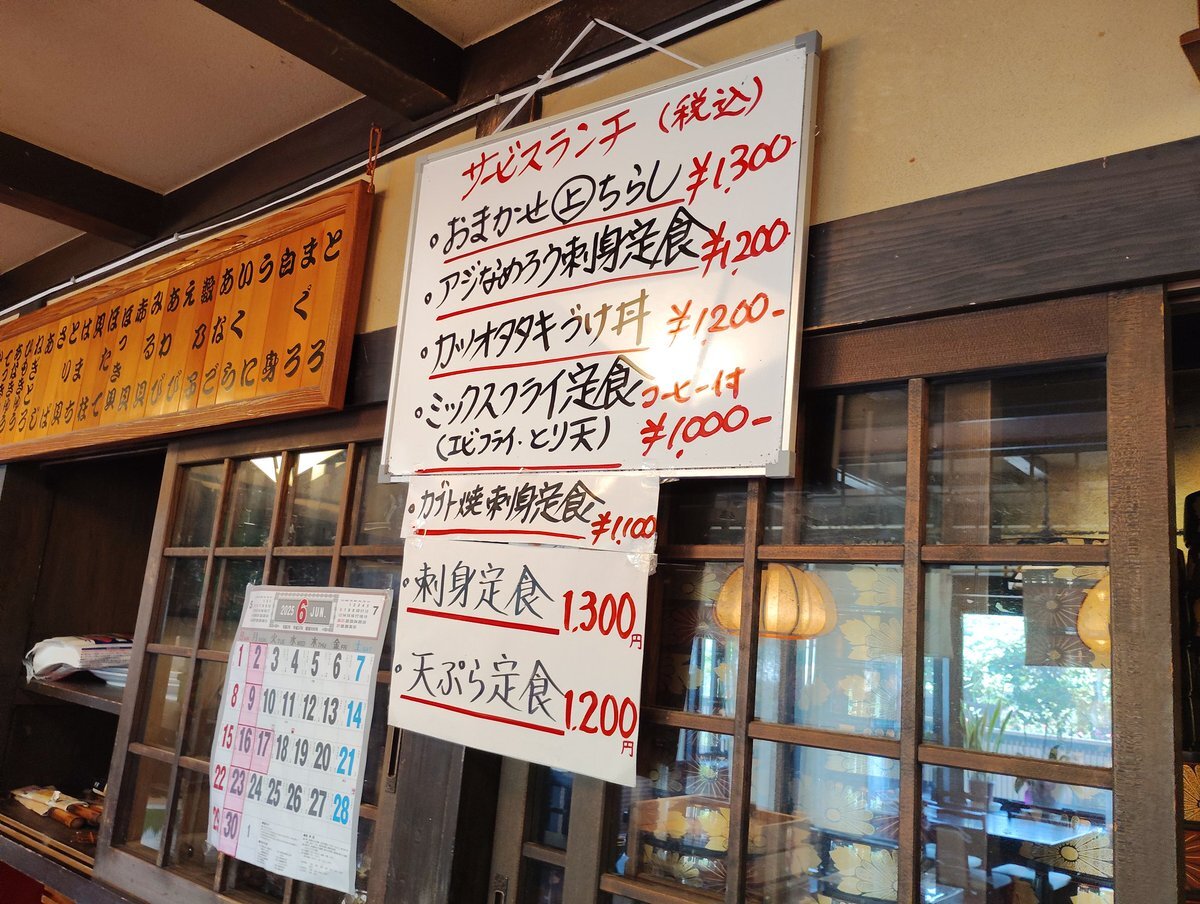 サービスランチ (税込)
・おまかせ㊤ちらし ¥1,300-
・アジなめろう刺身定食 ¥1,200-
・カツオタタキづけ丼 ¥1,200-
・ミックスフライ定食 コーヒー付
(エビフライ・とり天) ¥1,000-
・カブト焼刺身定食 ¥1,100
・刺身定食 1,300円
・天ぷら定食 1,200円
まぐろ
白身
うに
いくら
あなご
数の子
えび
あわび
みる貝
赤貝
2025 6 JUN.
5 7
月 火 水 木 金 土
1 2 3 4 5 6 7
8 9 10 11 12 13 14
15 16 17 18 19 20 21
22 23 24 25 26 27 28
29 30